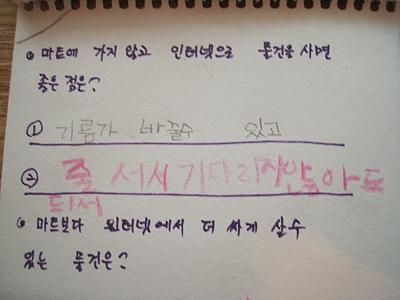 마트에 가지 않고 인터넷으로 물건을 사면
좋은 점은?
① 기름가 바꿀수 있고
② 줄 서서 기다리지않아도
되서
마트보다 인터넷에서 더 싸게 살수
있는 물건은?